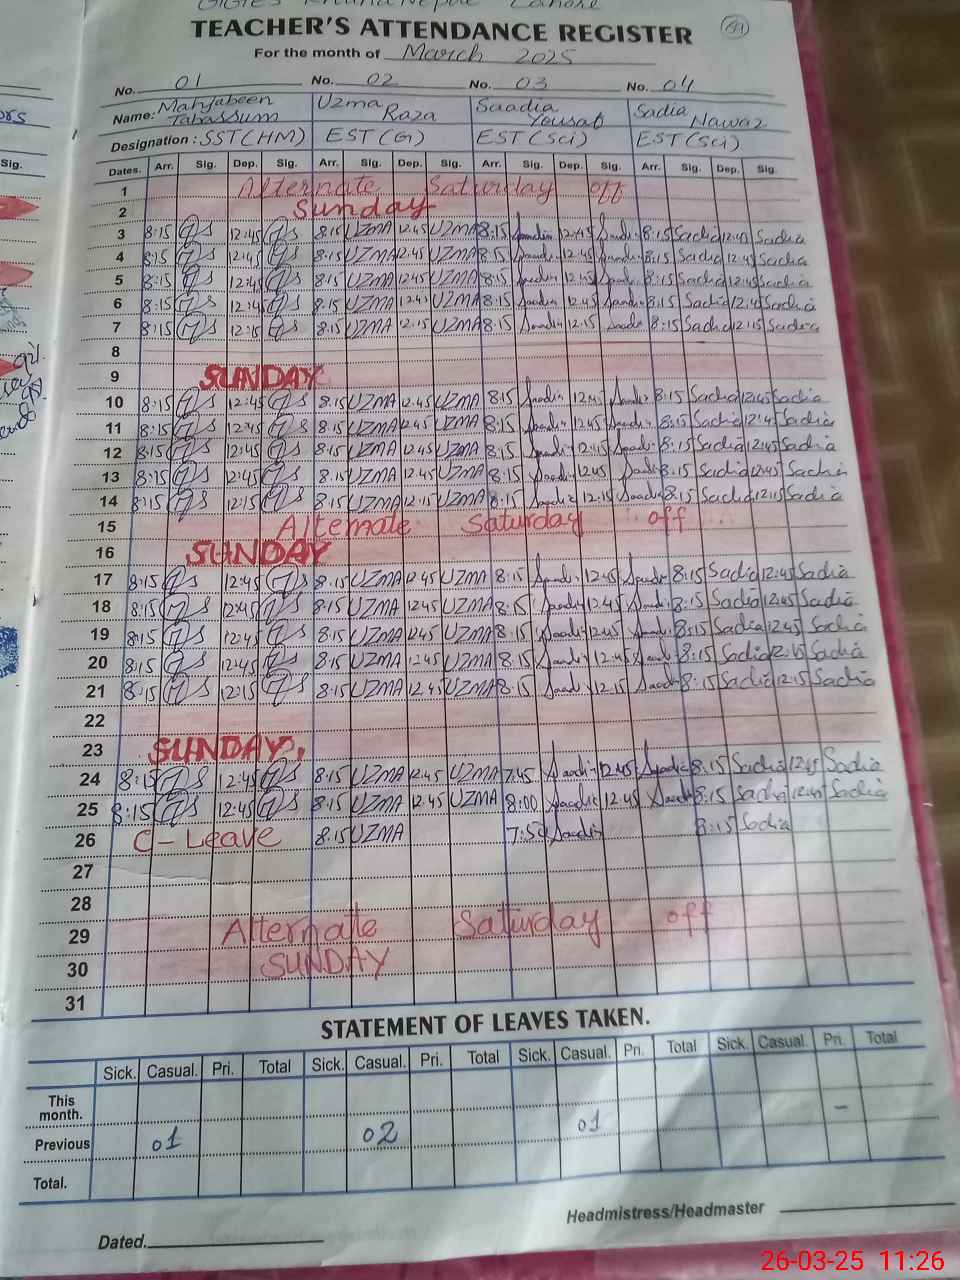 TEACHER'S ATTENDANCE REGISTER
For the month of March 2025
No. 01 No. 02 No. 03 No. 04
Name: Mahjabeen Tabassum Uzma Raza Saadia Yousaf Sadia Nawaz
Designation: SST(HM) EST(G) EST(Sci) EST(Sci)
Dates. Arr. Sig. Dep. Sig. Arr. Sig. Dep. Sig. Arr. Sig. Dep. Sig. Arr. Sig. Dep. Sig.
1 Alternate Saturday off
2 Sunday
3 8:15 12:45 8:15 UZMA 12:45 UZMA 8:15 Saadia 12:45 Saadia 8:15 Sadia 12:45 Sadia
4 8:15 12:45 8:15 UZMA 12:45 UZMA 8:15 Saadia 12:45 Saadia 8:15 Sadia 12:45 Sadia
5 8:15 12:45 8:15 UZMA 12:45 UZMA 8:15 Saadia 12:45 Saadia 8:15 Sadia 12:45 Sadia
6 8:15 12:45 8:15 UZMA 12:45 UZMA 8:15 Saadia 12:45 Saadia 8:15 Sadia 12:45 Sadia
7 8:15 12:15 8:15 UZMA 12:15 UZMA 8:15 Saadia 12:15 Saadia 8:15 Sadia 12:15 Sadia
8
9 SUNDAY
10 8:15 12:45 8:15 UZMA 12:45 UZMA 8:15 Saadia 12:45 Saadia 8:15 Sadia 12:45 Sadia
11 8:15 12:45 8:15 UZMA 12:45 UZMA 8:15 Saadia 12:45 Saadia 8:15 Sadia 12:45 Sadia
12 8:15 12:45 8:15 UZMA 12:45 UZMA 8:15 Saadia 12:45 Saadia 8:15 Sadia 12:45 Sadia
13 8:15 12:45 8:15 UZMA 12:45 UZMA 8:15 Saadia 12:45 Saadia 8:15 Sadia 12:45 Sadia
14 8:15 12:15 8:15 UZMA 12:15 UZMA 8:15 Saadia 12:15 Saadia 8:15 Sadia 12:15 Sadia
15 Alternate Saturday off
16 SUNDAY
17 8:15 12:45 8:15 UZMA 12:45 UZMA 8:15 Saadia 12:45 Saadia 8:15 Sadia 12:45 Sadia
18 8:15 12:45 8:15 UZMA 12:45 UZMA 8:15 Saadia 12:45 Saadia 8:15 Sadia 12:45 Sadia
19 8:15 12:45 8:15 UZMA 12:45 UZMA 8:15 Saadia 12:45 Saadia 8:15 Sadia 12:45 Sadia
20 8:15 12:45 8:15 UZMA 12:45 UZMA 8:15 Saadia 12:45 Saadia 8:15 Sadia Sadia
21 8:15 12:15 8:15 UZMA 12:45 UZMA 8:15 Saadia 12:15 Saadia 8:15 Sadia 12:15 Sadia
22
23 SUNDAY
24 8:15 12:45 8:15 UZMA 12:45 UZMA 7:45 Saadia 12:45 Saadia 8:15 Sadia 12:45 Sadia
25 8:15 12:45 8:15 UZMA 12:45 UZMA 8:00 Saadia 12:45 Saadia 8:15 Sadia 12:45 Sadia
26 C-Leave 8:15 UZMA 7:50 Saadia 8:15 Sadia
27
28
29 Alternate Saturday off
30 SUNDAY
31
STATEMENT OF LEAVES TAKEN.
Sick. Casual. Pri. Total Sick. Casual. Pri. Total Sick. Casual. Pri. Total Sick. Casual. Pri. Total
This month. –
Previous 01 02 01
Total.
Headmistress/Headmaster
Dated.
26-03-25 11:26